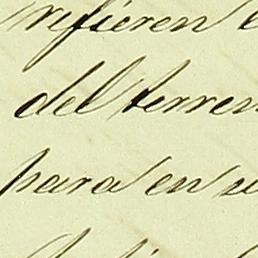 refieren
del terren
para en u